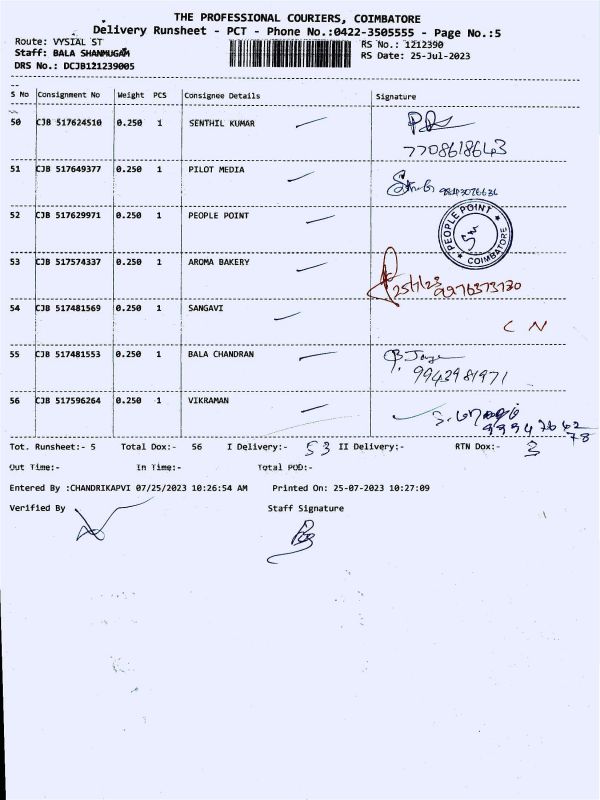 THE PROFESSIONAL COURIERS, COIMBATORE
Delivery Runsheet - PCT - Phone No.:0422-3505555 - Page No.:5
Route: VYSIAL ST RS No.: 1212390
Staff: BALA SHANMUGAM RS Date: 25-Jul-2023
DRS No.: DCJB121239005
S No Consignment No Weight PCS Consignee Details Signature
50 CJB 517624510 0.250 1 SENTHIL KUMAR
7708618643
51 CJB 517649377 0.250 1 PILOT MEDIA
52 CJB 517629971 0.250 1 PEOPLE POINT
PEOPLE POINT
COIMBATORE
53 CJB 517574337 0.250 1 AROMA BAKERY
25/7/23 9976373730
54 CJB 517481569 0.250 1 SANGAVI
C N
55 CJB 517481553 0.250 1 BALA CHANDRAN
9943981971
56 CJB 517596264 0.250 1 VIKRAMAN
Tot. Runsheet:- 5 Total Dox:- 56 I Delivery:- 53 II Delivery:- RTN Dox:- 3
Out Time:- In Time:- Total POD:-
Entered By :CHANDRIKAPVI 07/25/2023 10:26:54 AM Printed On: 25-07-2023 10:27:09
Verified By Staff Signature